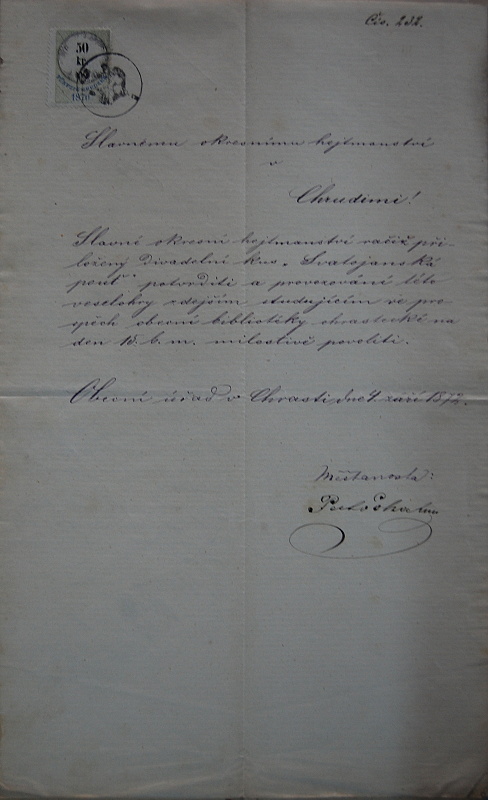 Čís. 232.
50
kr.
1870
Slavnému okresnímu hejtmanství
v
Chrudimi!
Slavné okresní hejtmanství račiž při-
ložený divadelní kus „Svatojanská
pouť“ potvrditi a provozování této
veselohry zdejším studujícím ve pro-
spěch obecní bibliotéky chrastecké na
den 15. t. m. milostivě povoliti.
Obecní úřad v Chrasti, dne 4. září 1872.
Měšťanosta: